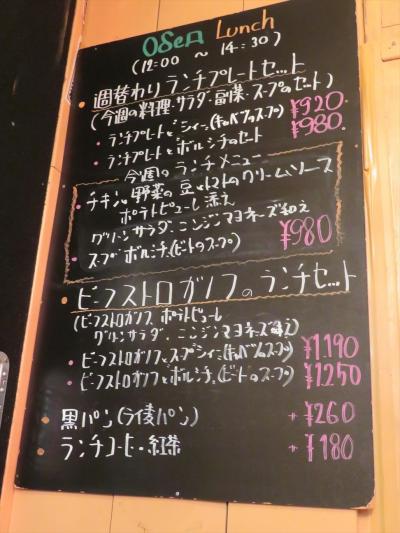 Обед Lunch
(12:00 ～ 14:30)
週替わりランチプレートセット
(今週の料理・サラダ・副菜・スープのセット)
・ランチプレートとシィー(キャベツのスープ) ¥920
・ランチプレートとボルシチのセット ¥980
今週のランチメニュー
・チキンと野菜の豆とトマトのクリームソース
ポテトピューレ添え
グリーンサラダ、ニンジンマヨネーズ和え
・スープ ボルシチ(ビートのスープ) ¥980
・ビーフストロガノフのランチセット
(ビーフストロガノフ、ポテトピューレ
グリーンサラダ、ニンジンマヨネーズ和え)
・ビーフストロガノフとスープシィー(キャベツのスープ) ¥1.190
・ビーフストロガノフとボルシチ(ビートのスープ) ¥1.250
・黒パン(ライ麦パン) +¥260
・ランチコーヒー・紅茶 +¥180